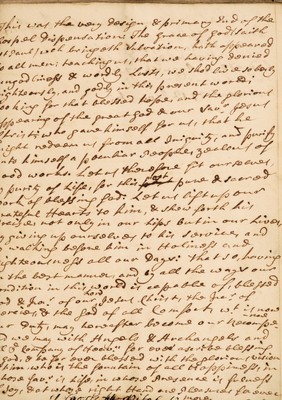 This was the very design & primary End of the
Gospel dispensation: The Grace of God, saith
St Paul, wch bringeth Salvation, hath appeared
to all men; teaching us, that we having denied
ungodliness & worldly Lusts, we shd live soberly
righteously, and godly in this present world;
looking for that blessed hope, and the glorious
appearing of the great God & our Savr Jesus
Christ; who gave himself for us, that he
might redeem us from all Iniquity, and purify
unto himself a peculiar People, zealous of
good works. Let us therefore get ourselves
purity of Life, for this most pure & sacred
work of blessing God. Let us lift up our
grateful Hearts to him, & shew forth his
praises not only in our Lips but in our Lives
by giving up ourselves to his service, and
by walking before him in Holiness and
righteousness all our days: That so, having
in the best manner, and by all the ways our
condition in this world is capable of, blessed
God & Fa: of our Jesus Christ, the Fa: of
mercies, & the God of all Comfort, wt is now
our Duty, may hereafter become our Recompense
and we may with Angels & Archangels and
the Company of Heavn for ever quote blessing
God, & be for ever blessed with the glorious Vision
him who is the fountain of all Happiness, in
whose favr is Life, in whose Presence is fulness
of Joy, & at whose right Hand are pleasures for ever